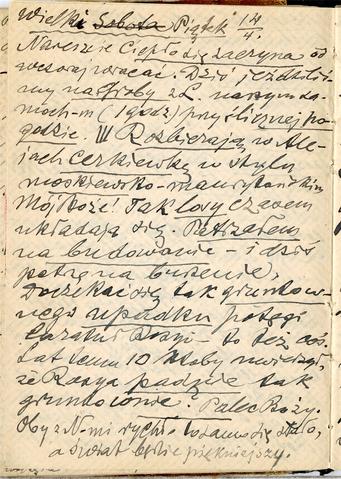 Wielki Sobota Piątek 14/4.
Nareszcie Ciepło się zaczyna od
wczoraj wracać. Dziś jeździliś
my na groby z L. naszym da
(1 godz) prześlicznej po
godzie. !!! Rozbierają w Ale-
jach cerkiewkę w stylu
moskiewsko-mauretańskim
Mój Boże! Tak losy czasem
układają się. Patrzałem
na budowanie - i dziś
patrzę na burzenie,
Doczekać się tak gruntow-
nego upadku potęgi
caratu Rosyi - to też coś.
Lat temu 10 ktoby uwierzył,
że Rosya padnie tak
gruntownie? Palec Boży.
Oby z N-mi rychło to samo się stało,
a świat będzie piękniejszy.